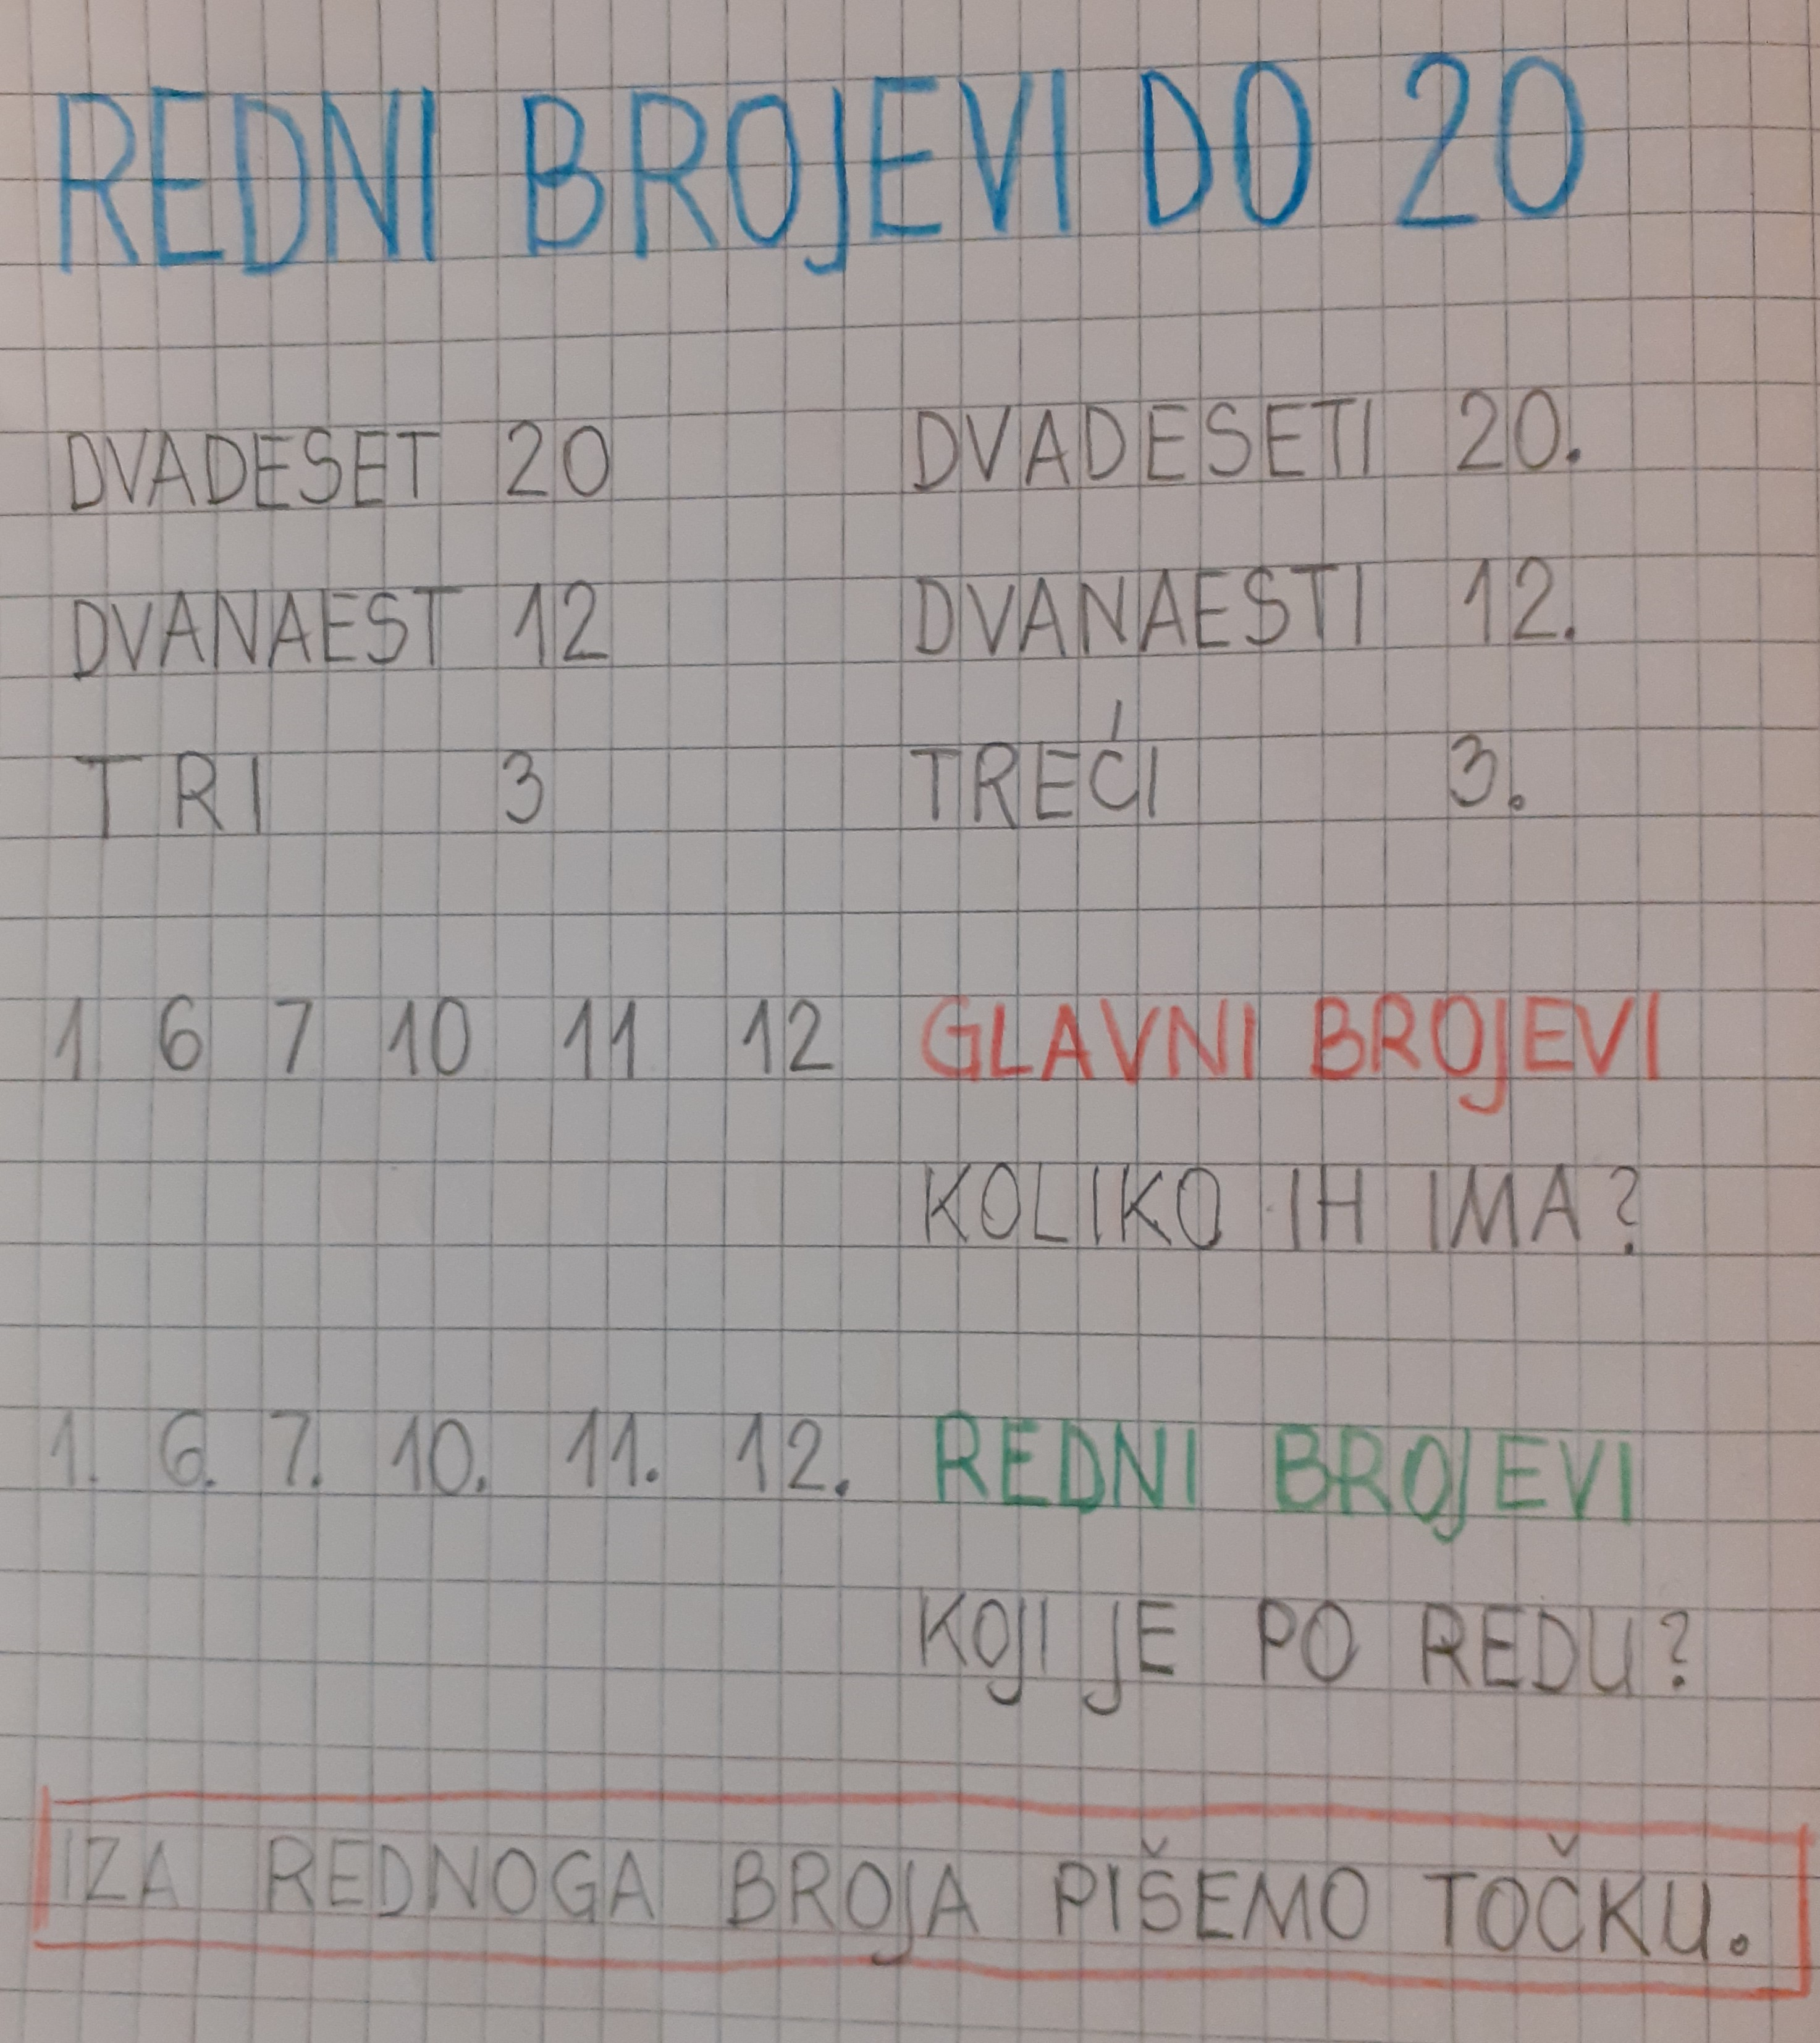 REDNI BROJEVI DO 20
DVADESET 20 DVADESETI 20.
DVANAEST 12 DVANAESTI 12.
TRI 3 TREĆI 3.
1 6 7 10 11 12 GLAVNI BROJEVI
KOLIKO IH IMA?
1. 6. 7. 10. 11. 12. REDNI BROJEVI
KOJI JE PO REDU?
IZA REDNOGA BROJA PIŠEMO TOČKU.